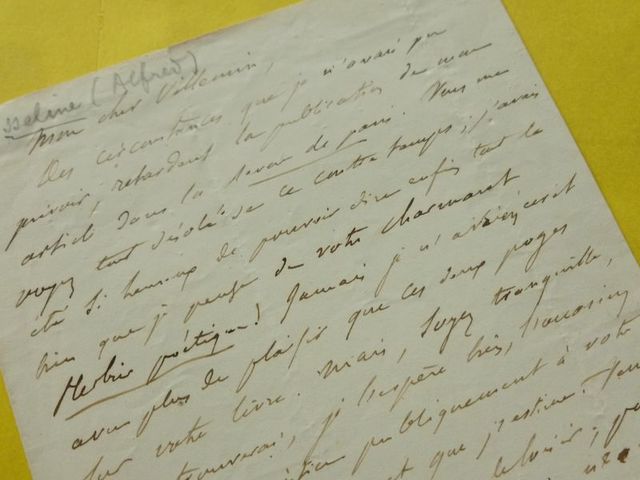 sseline (Alfred)
Mon cher Villemin,
Des circonstances que je n'avais pu
prévoir, retardent la publication de mon
article dans la Revue de Paris. Vous me
voyez tout désolé de ce contre temps; j'avais
été si heureux de pouvoir dire enfin tout le
bien que je pense de votre charmant
Herbier poétique! Jamais je n'avais écrit
avec plus de plaisir que ces deux pages
sur votre livre. Mais, soyez tranquille,
trouverai, je l'espère bien, l'occasion
publiquement à votre
que j'estime.
loisir,